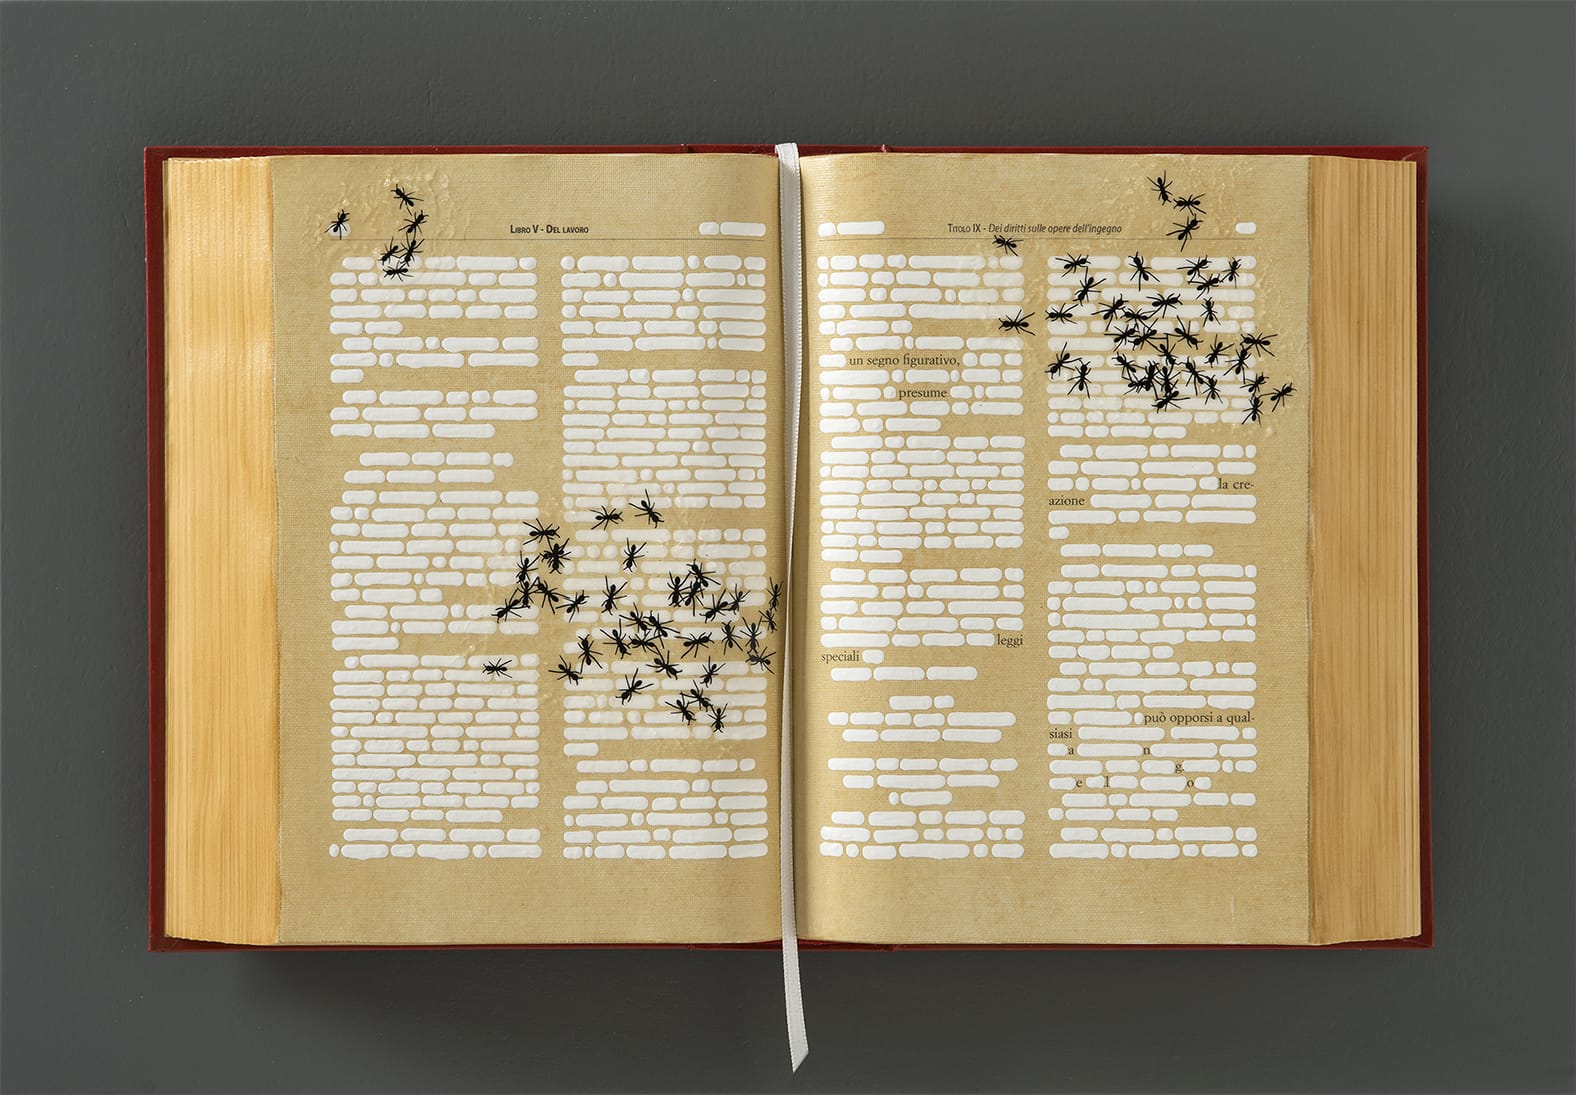 LIBRO V - DEL LAVORO
TITOLO IX - Dei diritti sulle opere dell'ingegno
un segno figurativo,
presume
leggi
speciali
la cre-
azione
può opporsi a qual-
siasi
a n
g.
e l o